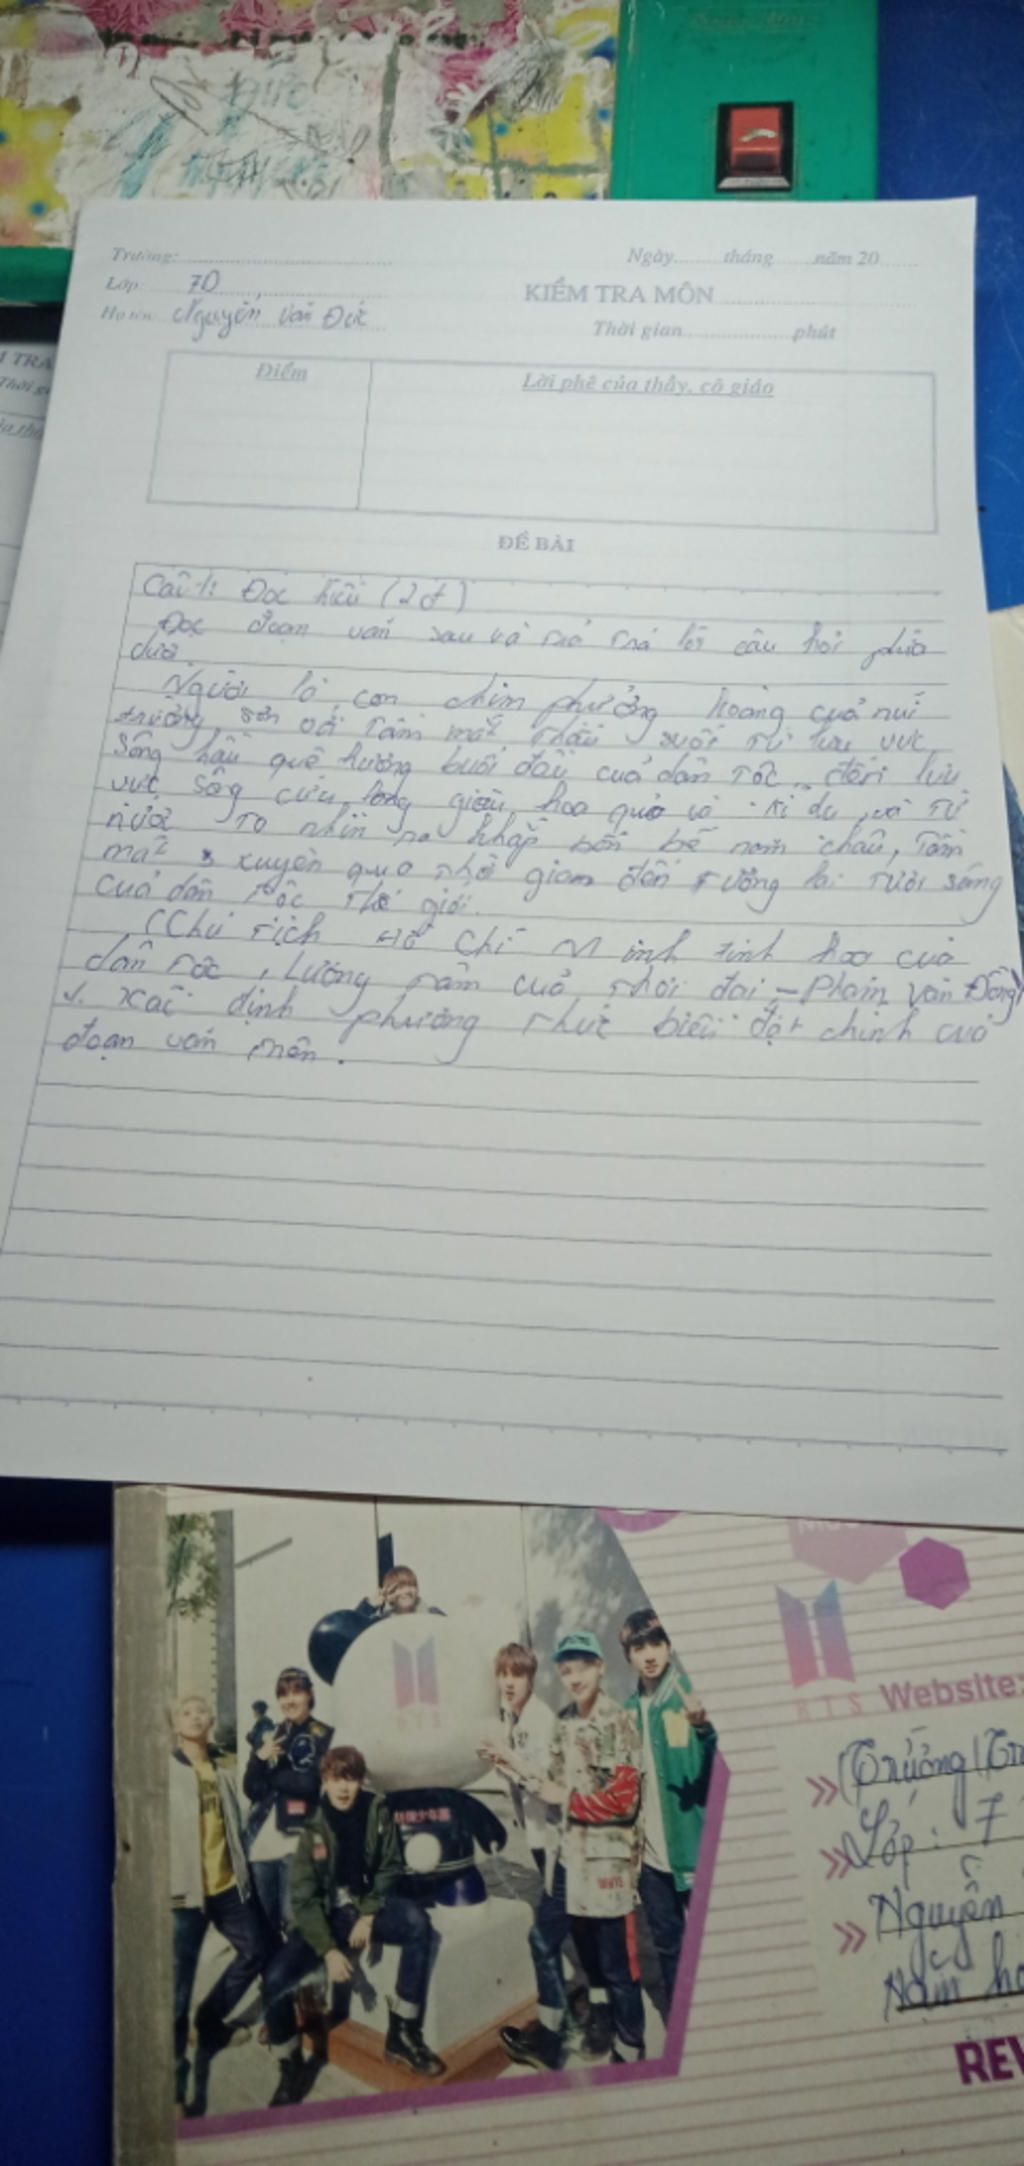 Đức
Trường:
Ngày......tháng......năm 20
Lớp: 7D
KIỂM TRA MÔN
Họ tên: Nguyễn Văn Đức
Thời gian.................phút
Điểm
Lời phê của thầy, cô giáo
ĐỀ BÀI
Câu 1: Đọc hiểu (2đ)
Đọc đoạn văn sau và trả lời câu hỏi phía
dưới
Người là con chim phượng hoàng của núi
trường sơn tầm mắt suốt từ lưu vực
sông hậu quê hương buổi đầu của dân tộc, đến lưu
vực sông cửu long giàu hoa quả và kì dị, và từ
nước nhìn ra khắp bốn bể năm châu, tầm
mắt xuyên qua thời gian đến tương lai tươi sáng
của dân tộc thế giới.
(Chủ tịch Hồ Chí Minh tinh hoa của
dân tộc, lương tâm của thời đại - Phạm Văn Đồng)
1. Xác định phương thức biểu đạt chính của
đoạn văn trên.
BTS
BTS Website:
Trường
Lớp: 7
Nguyễn
REV